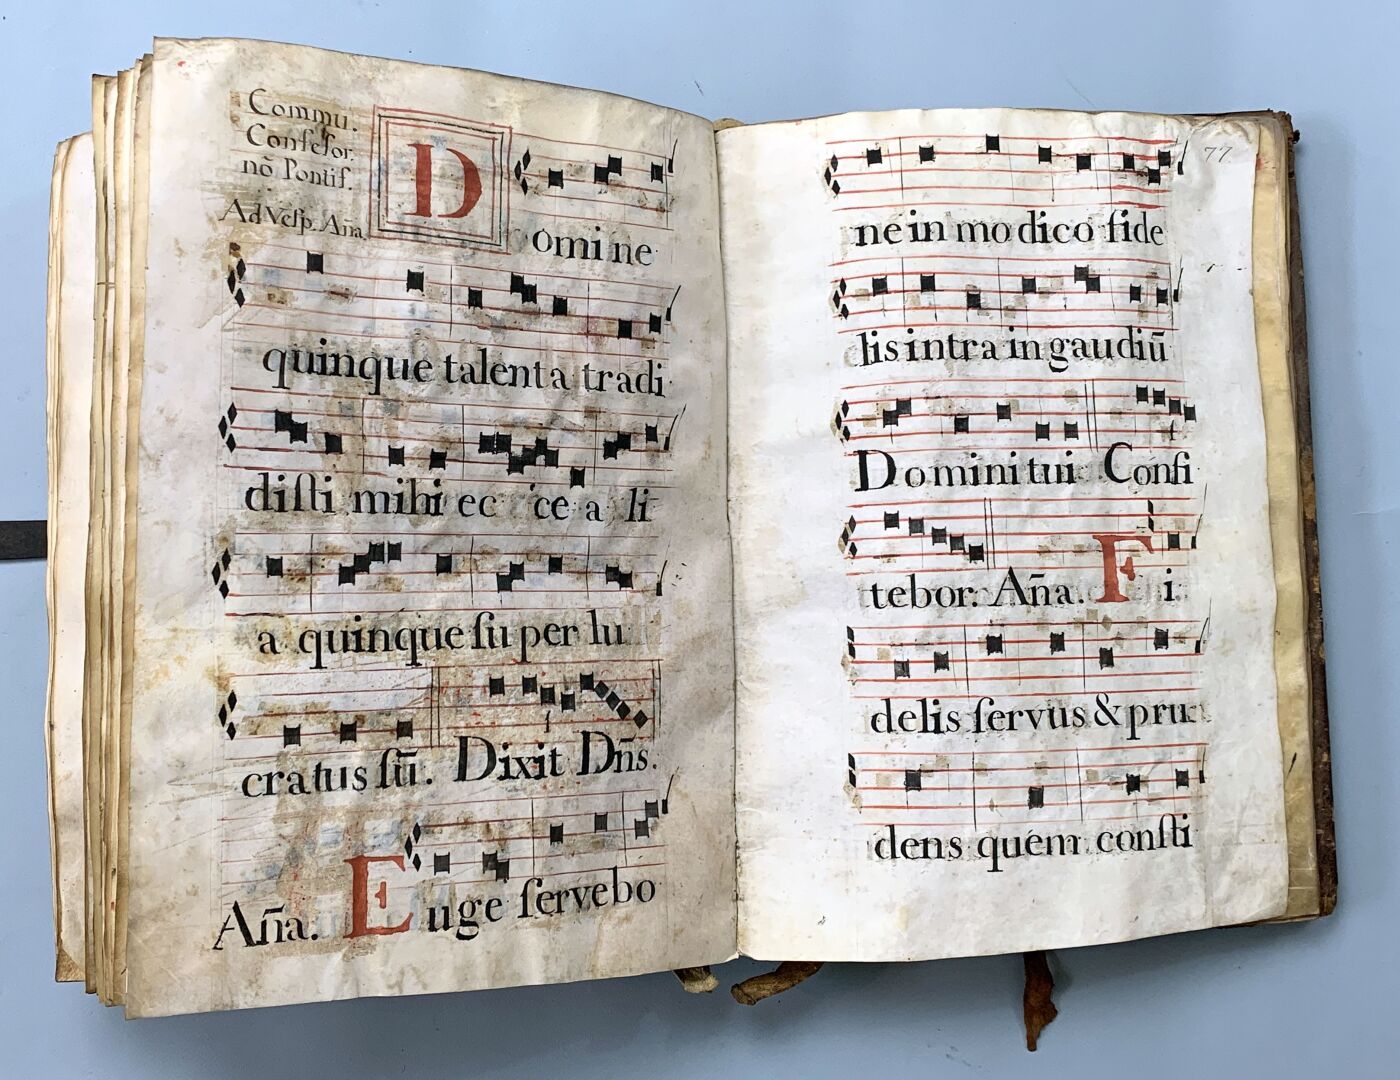 Commu.
Confeſor.
nõ Pontif.
Ad Veſp. Añа.
D omi ne
quinque talenta tradi
diſti mihi ec ce a li
a quinque ſu per lu
cratus ſũ. Dixit Dñs.
Aña. E uge ſerve bo
77
ne in mo dico fide
lis intra in gaudiũ
Domini tui Confi
tebor. Aña. F i
delis ſervus & pru
dens quem conſti